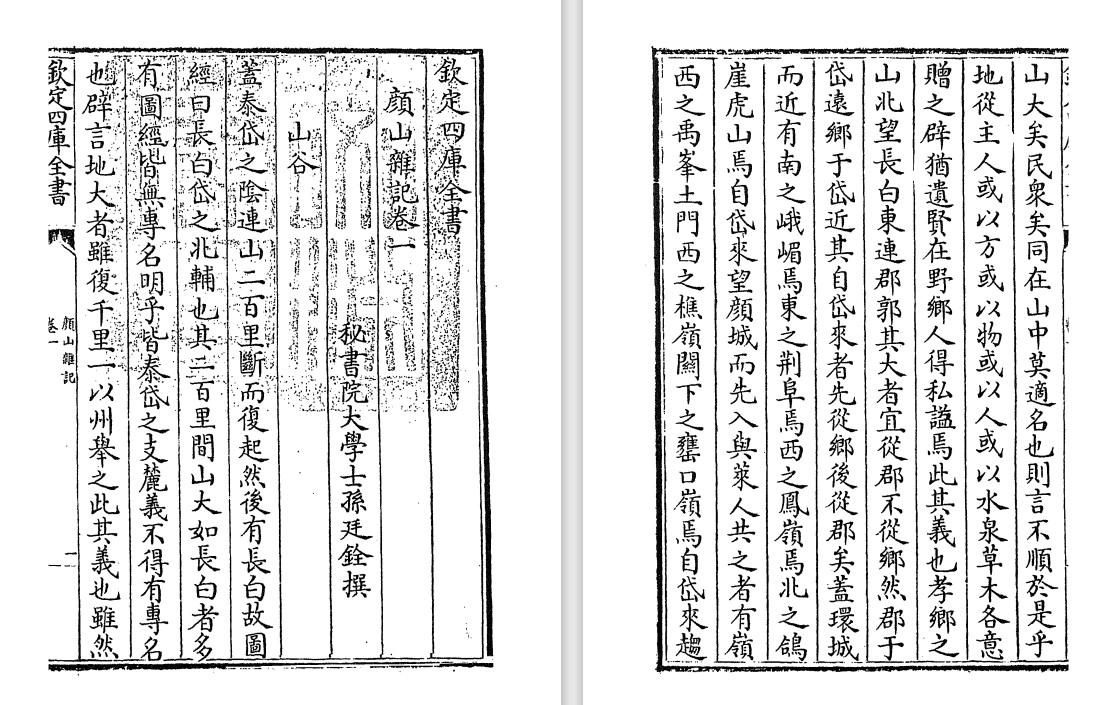 欽定四庫全書
顏山雜記卷一
秘書院大學士孫廷銓撰
山谷
蓋泰岱之陰連山二百里斷而復起然後有長白故圖
經曰長白岱之北輔也其二百里間山大如長白者多
有圖經皆無專名明乎皆泰岱之支麓義不得有專名
也辟言地大者雖復千里一以州舉之此其義也雖然
欽定四庫全書
顏山雜記
卷一
一
山大矣民衆矣同在山中莫適名也則言不順於是乎
地從主人或以方或以物或以人或以水泉草木各意
贈之辟猶遺賢在野鄉人得私謚焉此其義也孝鄉之
山北望長白東連郡郭其大者宜從郡不從鄉然郡于
岱遠鄉于岱近其自岱來者先從鄉後從郡矣蓋環城
而近有南之峨嵋焉東之荆阜焉西之鳳嶺焉北之鴿
崖虎山焉自岱來望顏城而先入與萊人共之者有嶺
西之禹峯土門西之樵嶺闗下之罋口嶺焉自岱來趨